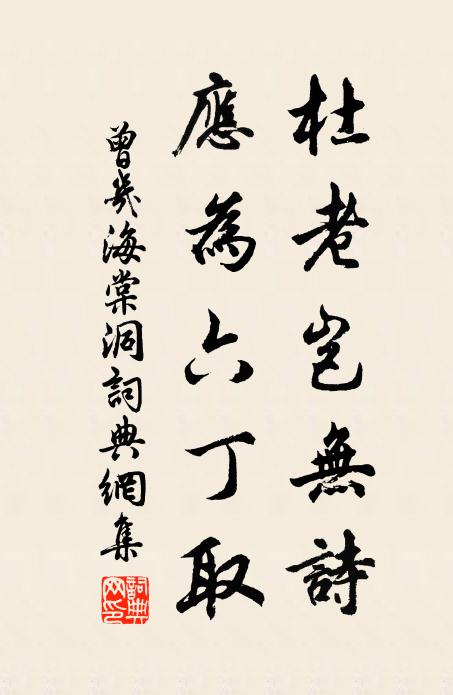 杜老豈無詩
應為六丁取
曾幾海棠洞詞典網集
詞典網印